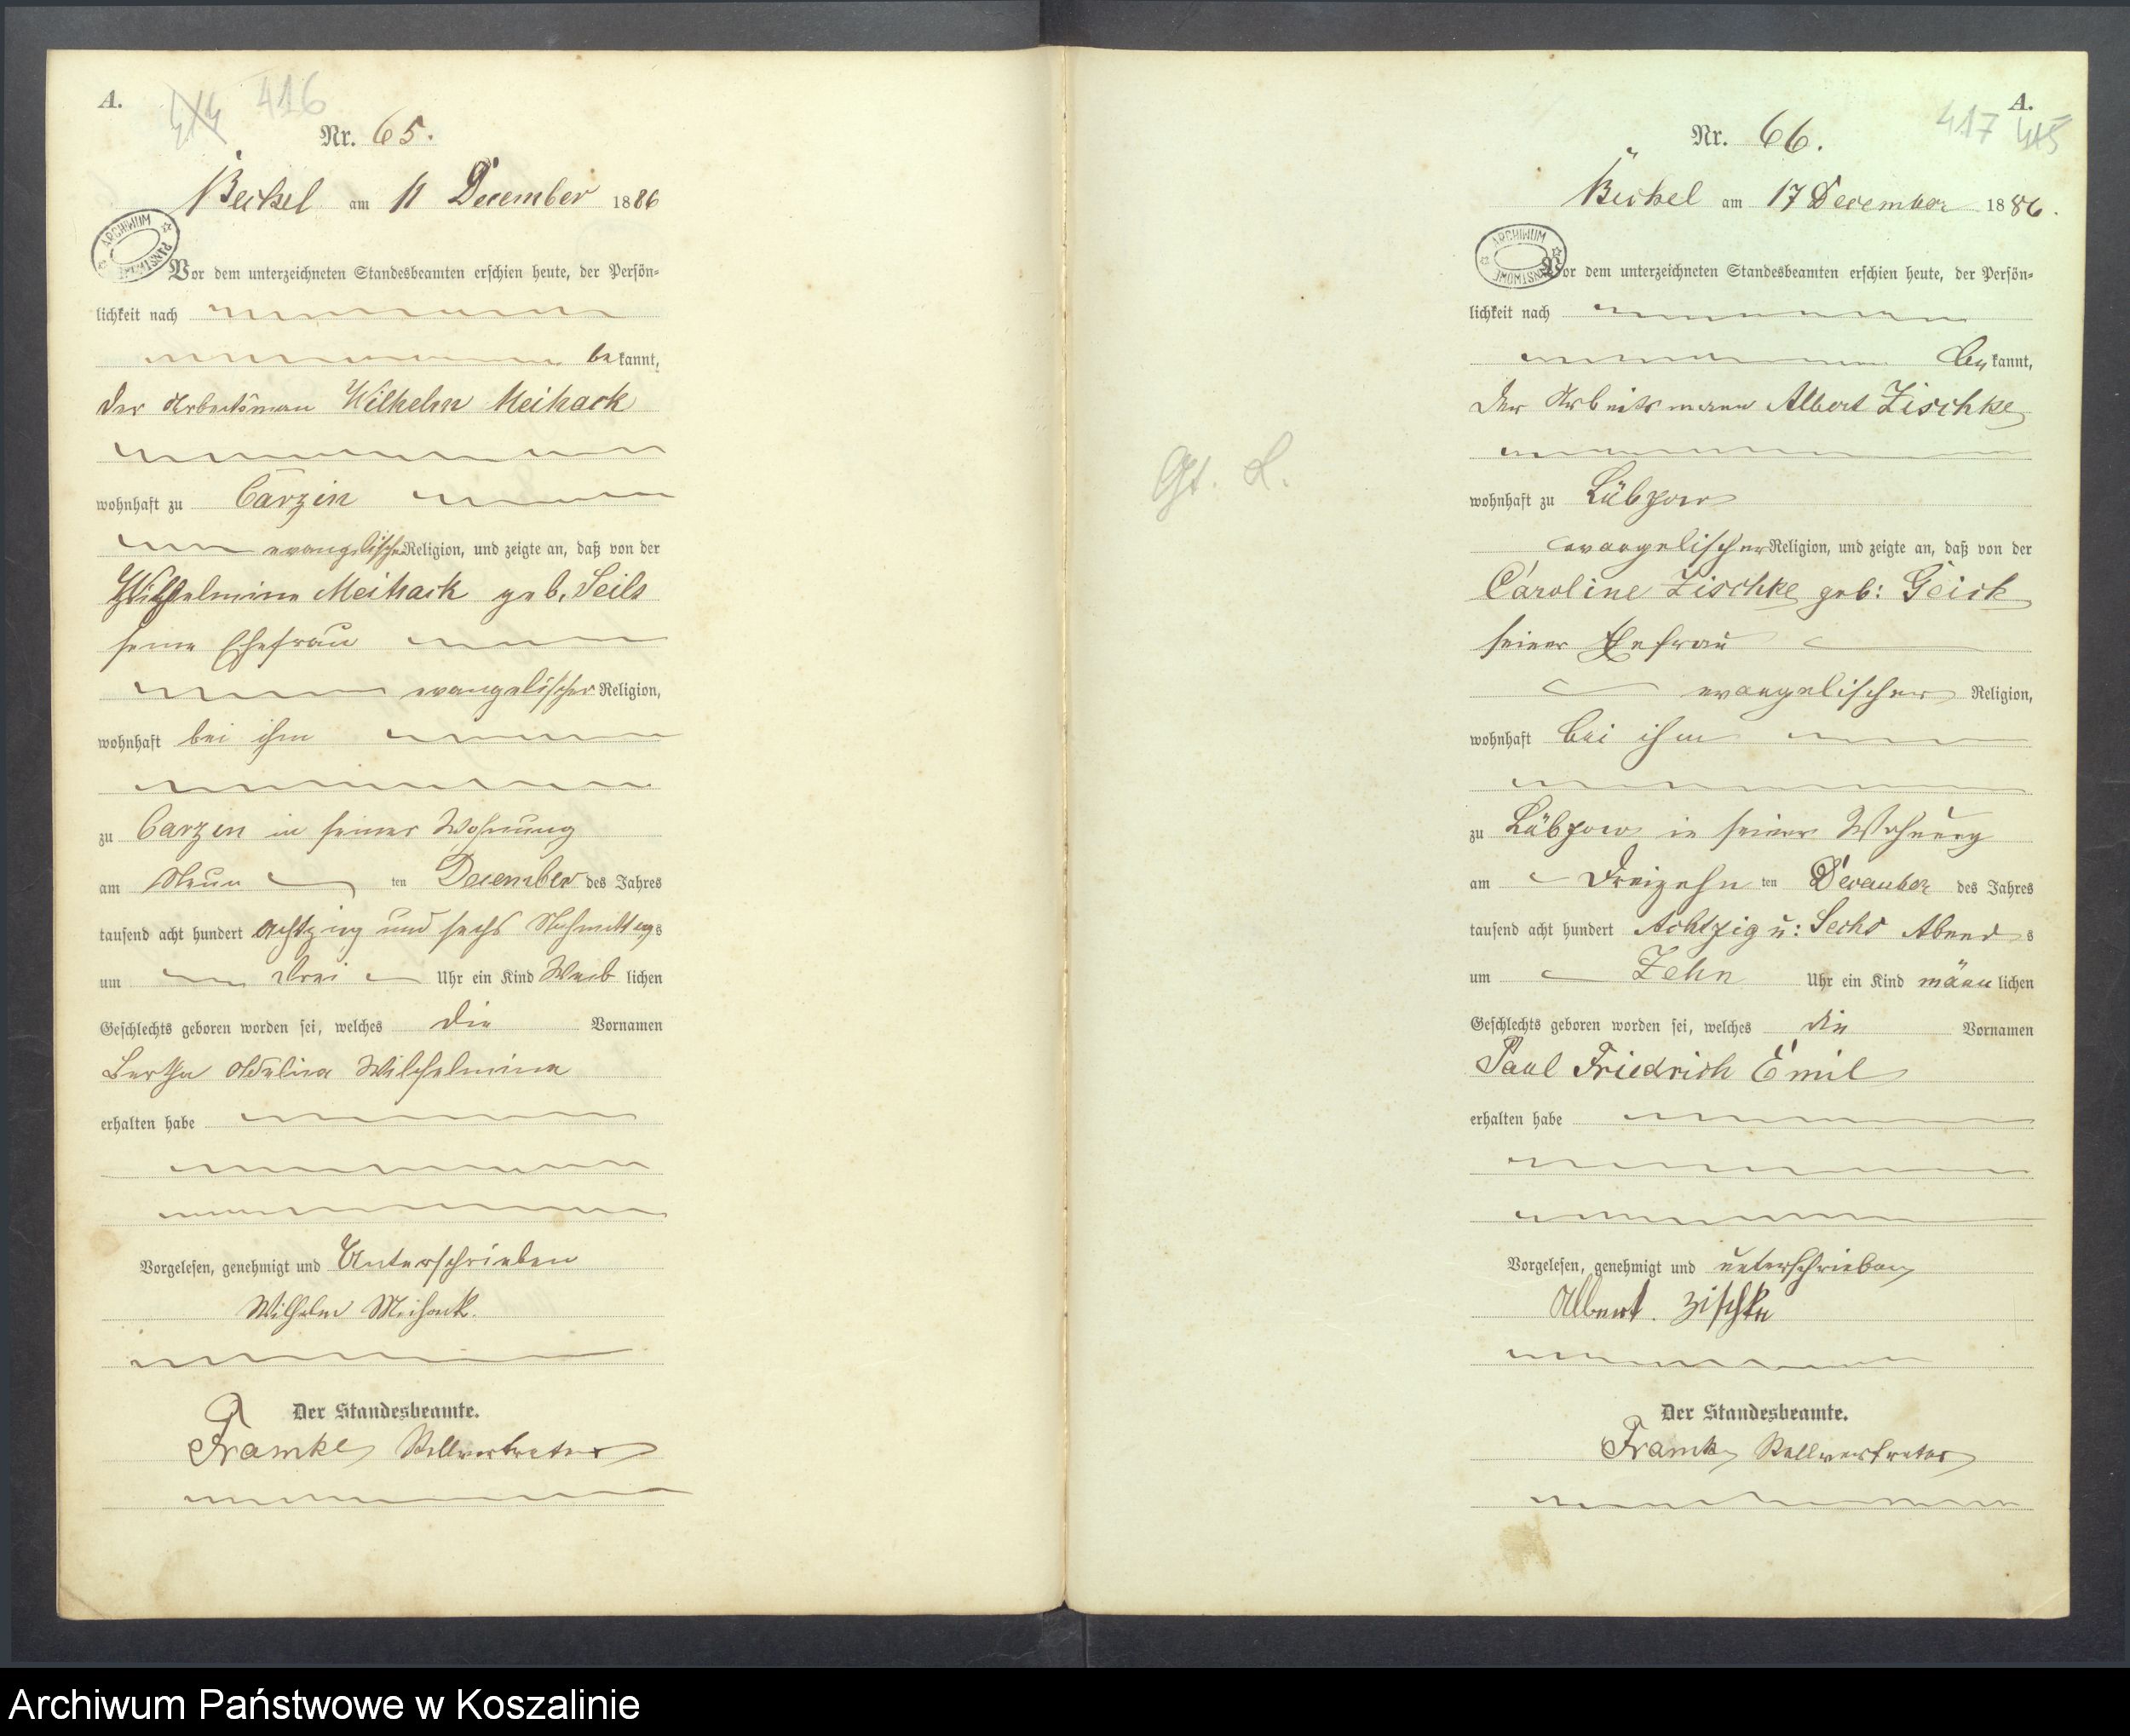 A.
414 416
Nr. 65.
Beckel am 11 December 1886
ARCHIWUM PAŃSTWOWE
Vor dem unterzeichneten Standesbeamten erschien heute, der Persön-
lichkeit nach
bekannt,
der Arbeitsmann Wilhelm Meihack
wohnhaft zu Carzin
evangelischer Religion, und zeigte an, daß von der
Wilhelmine Meihack geb. Seils
seine Ehefrau
evangelischer Religion,
wohnhaft bei ihm
zu Carzin in seiner Wohnung
am Neun ten December des Jahres
tausend acht hundert achtzig und sechs Nachmittags
um Drei Uhr ein Kind Weiblichen
Geschlechts geboren worden sei, welches die Vornamen
Bertha Wilhelmine
erhalten habe
Vorgelesen, genehmigt und Unterschrieben
Wilhelm Meihack.
Der Standesbeamte.
Framke Stellvertreter
A.
417 415
Nr. 66.
Beckel am 17 December 1886.
ARCHIWUM PAŃSTWOWE
Vor dem unterzeichneten Standesbeamten erschien heute, der Persön-
lichkeit nach
bekannt,
der Arbeitsmann Albert Zischke
wohnhaft zu Lübzow
evangelischer Religion, und zeigte an, daß von der
Caroline Zischke geb: Geick
seiner Ehefrau
evangelischer Religion,
wohnhaft bei ihm
zu Lübzow in seiner Wohnung
am Dreizehn ten December des Jahres
tausend acht hundert Achtzig u: Sechs Abends
um Zehn Uhr ein Kind männlichen
Geschlechts geboren worden sei, welches die Vornamen
Paul Friedrich Emil
erhalten habe
Vorgelesen, genehmigt und unterschrieben
Albert Zischke
Der Standesbeamte.
Framke Stellvertreter
Gt. L.
Archiwum Państwowe w Koszalinie